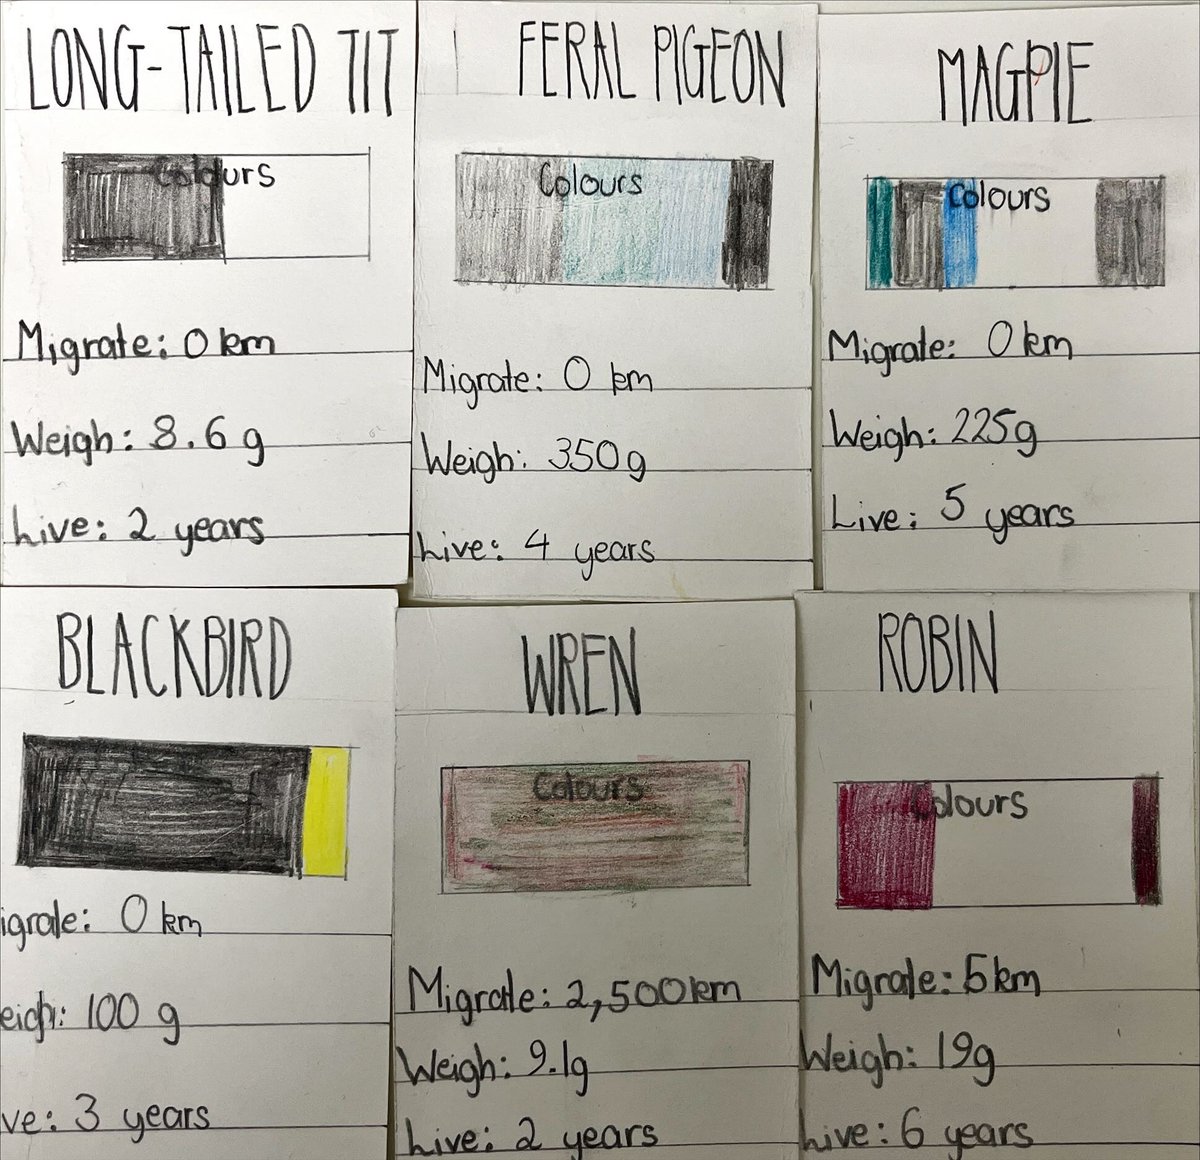 LONG-TAILED TIT
Colours
Migrate: 0 km
Weigh: 8.6 g
Live: 2 years
FERAL PIGEON
Colours
Migrate: 0 km
Weigh: 350g
Live: 4 years
MAGPIE
Colours
Migrate: 0 km
Weigh: 225g
Live: 5 years
BLACKBIRD
igrate: 0 km
eigh: 100 g
ve: 3 years
WREN
Colours
Migrate: 2,500km
Weigh: 9.1g
Live: 2 years
ROBIN
Colours
Migrate: 5km
Weigh: 19g
Live: 6 years